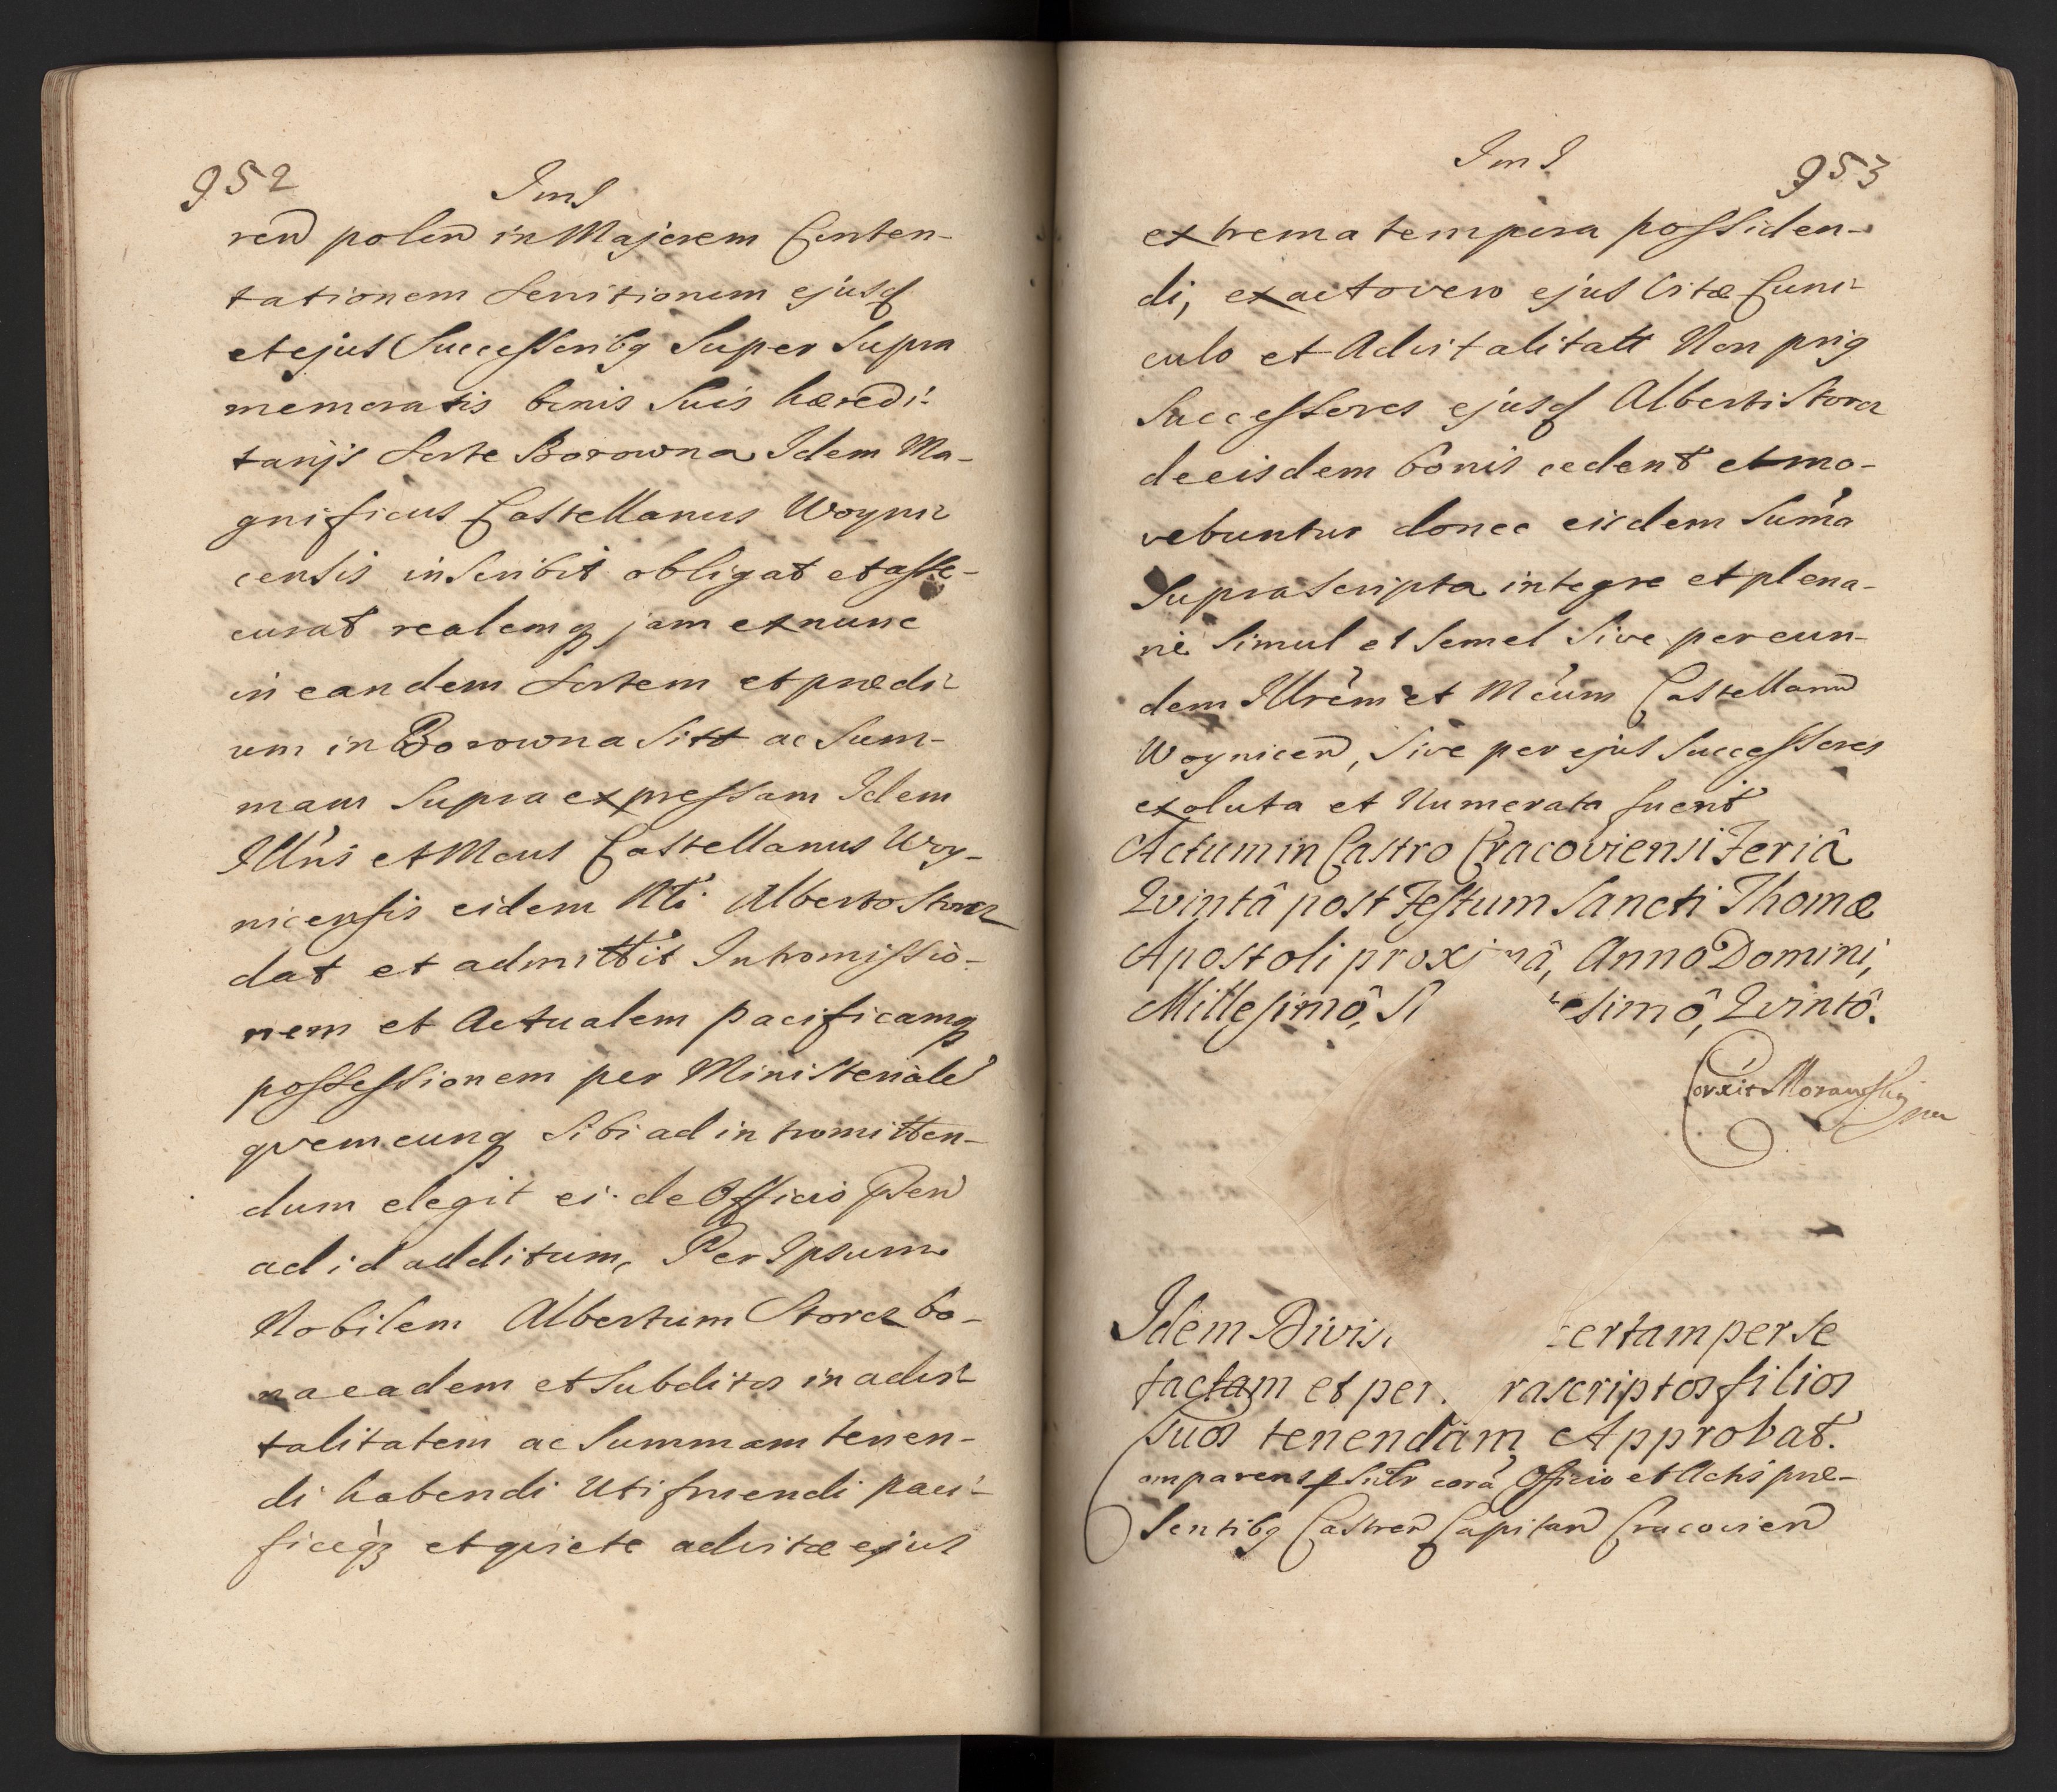 952
JmJ
ren̄ polon̄ in Majorem Conten-
tationem Servitiorum ejusd
et ejus Successoribq Super Supra
memoratis bonis Suis hæredi-
tarijs Sorte Borowna Idem Ma-
gnificus Castellanus Woyni-
censis inscribit obligat et asse-
curat realemq jam exnunc
in eandem Sortem et prædi-
um in Borowna Sitt ac Sum-
mam Supra expressam Idem
Illris et Mcus Castellanus Woy-
nicensis eidem Nli Alberto Storcz
dat et admittit Intromissio-
nem et Actualem pacificamq
possessionem per Ministeriale
qvemcunq Sibi ad intromitten-
dum elegit ei de Officio pn̄
ad id additum, Per Ipsum
Nobilem Albertum Storcz bo-
na eadem et Subditos in advi-
talitatem ac Summam tenen-
di habendi Utifruendi paci-
ficeq et qviete ad vitæ ejus
JmJ
953
extrema tempora possiden-
di, exacto vero ejus Vitæ Curri-
culo et Advitalitatt Non priq
Successores ejusd Alberti Storcz
de eisdem bonis cedent et mo-
vebuntur donec eisdem Suma
Suprascripta integre et plena-
rie Simul et Semel Sive per eun-
dem Illrem et Mcum Castellanu
Woynicen̄, Sive per ejus Successores
exoluta et Numerata fuerit
Actum in Castro Cracoviensi Feriâ
Qvintâ post Festum Sancti Thomæ
Apostoli proximâ, Anno Domini,
Millesimô, S esimô, Qvintô.
Corxit Morawskj mp
Idem Divis ertam per se
factam et per rascriptos filios
suos tenendam Approbat.
Comparens p Sittr corā Officio et Actis præ-
Sentibq Castren̄ Capitan̄ Cracovien̄